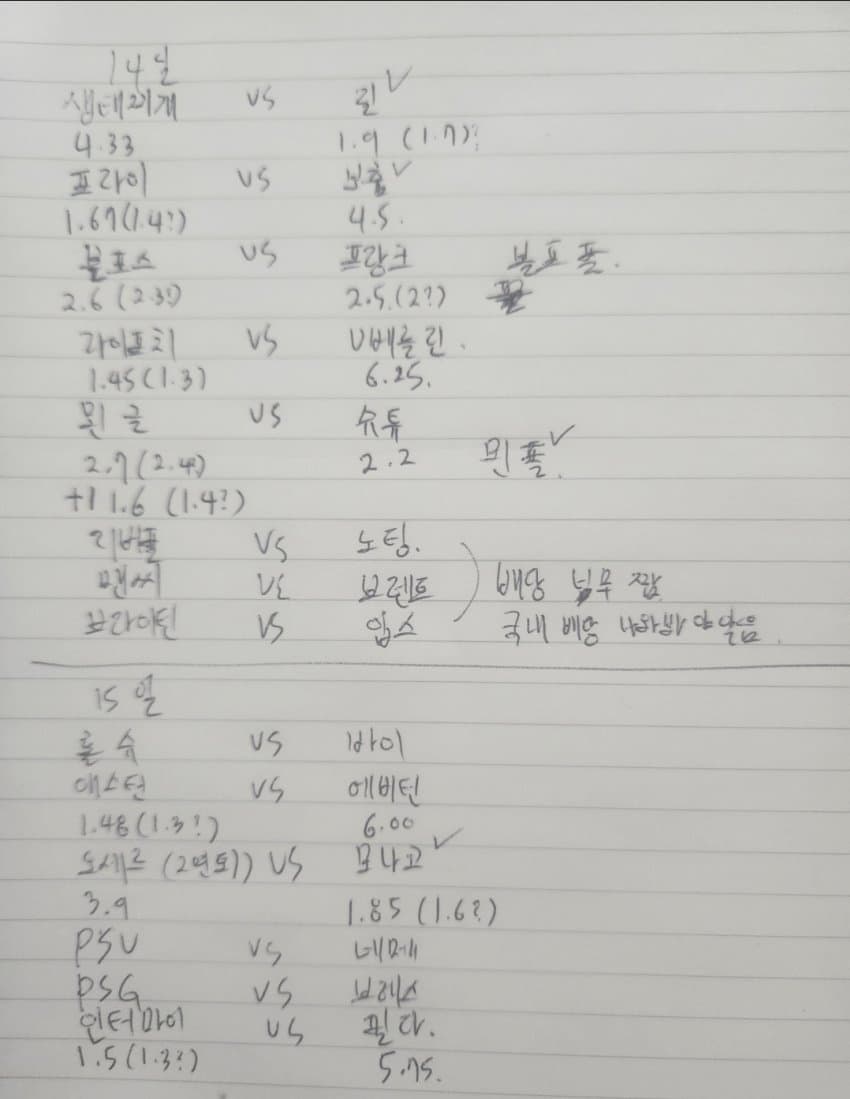 14일
생테티개 vs 릴✓
4.33 1.9 (1.7)?
프라이 vs 보훔✓
1.67(1.4?) 4.5.
볼포스 vs 프랑크 볼프풀.
2.6 (2.3?) 2.5.(2?)
라이프치 vs U베를린.
1.45(1.3) 6.25.
묀글 vs 슈튜
2.7(2.4?) 2.2 묀풀✓.
+1 1.6 (1.4?)
리버풀 vs 노팅.
맨씨 vs 브렌트 배당 너무 짬
브라이턴 vs 입스 국내 배당 나와봐야 알음.
15일
홀슈 vs 바이
애스턴 vs 에버턴
1.48(1.3?) 6.00
오세르 (2연토)) vs 모나코✓
3.9 1.85 (1.6?)
PSV vs 네메
PSG vs 브레스
인터마이 vs 필라.
1.5(1.3?) 5.75.